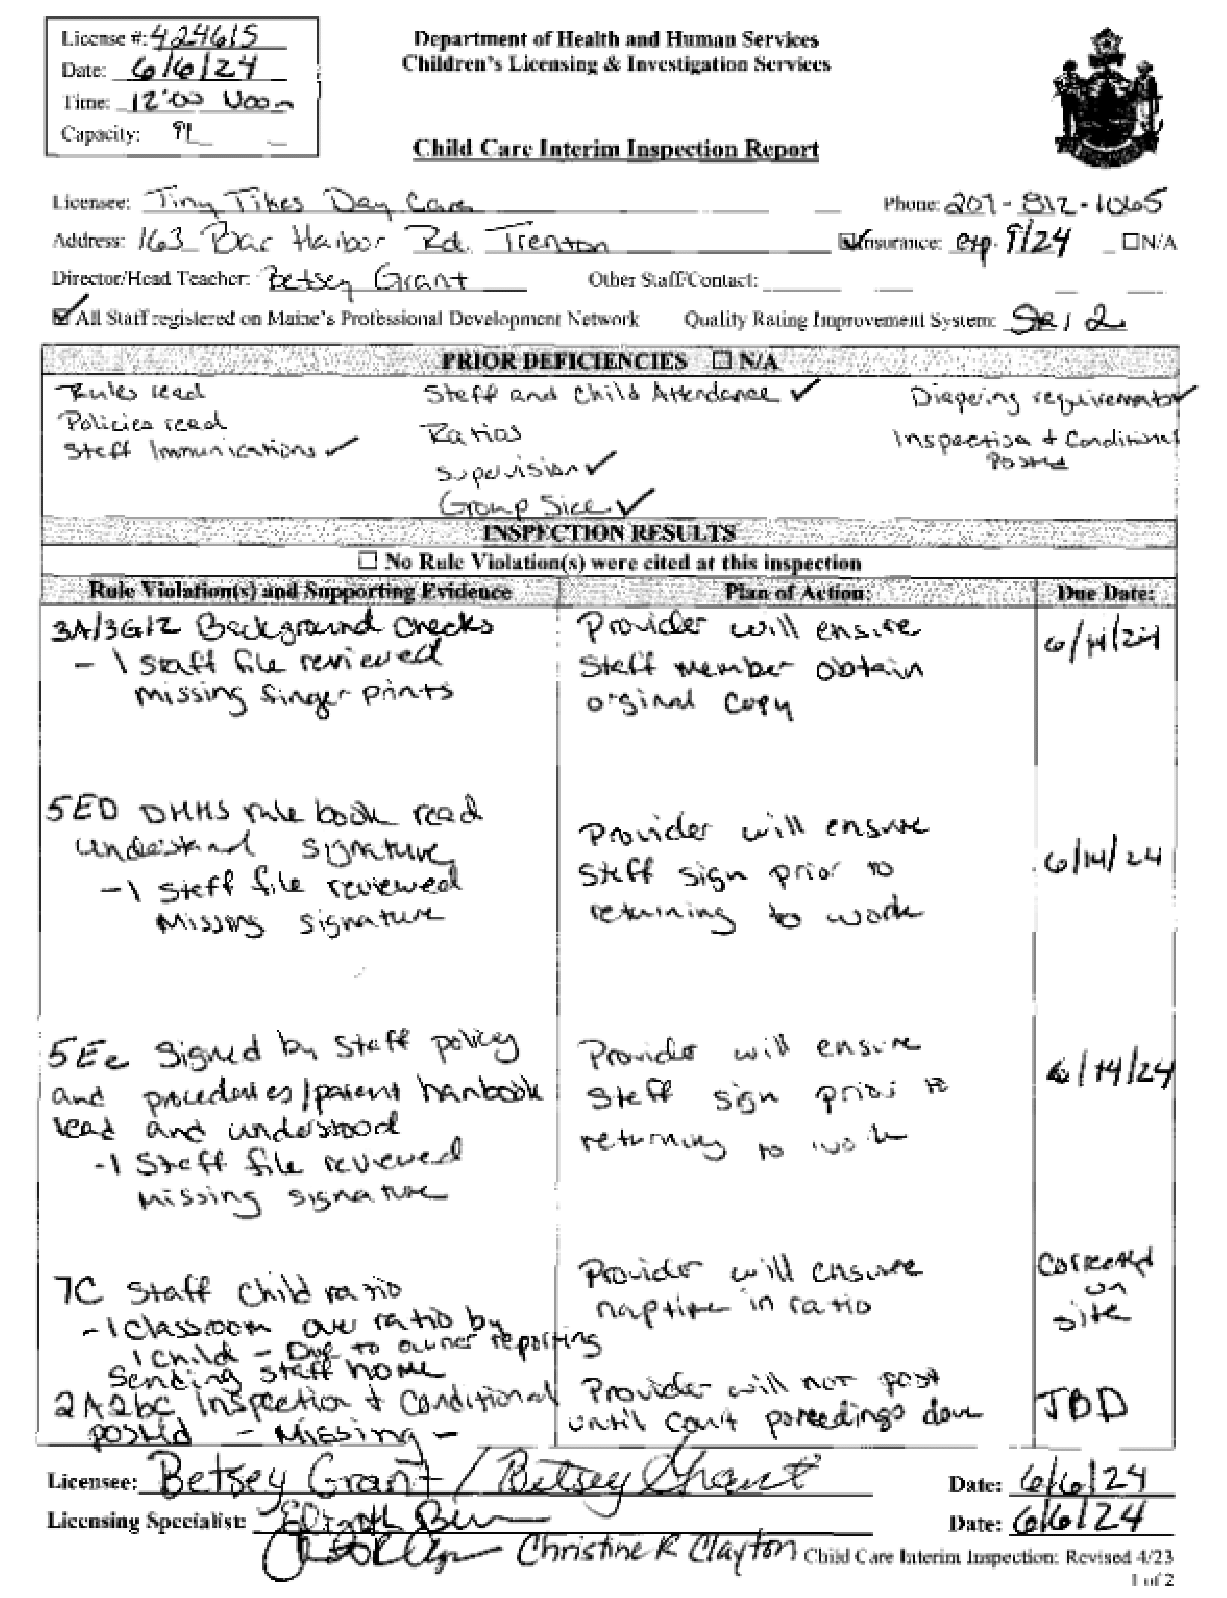 License #: 424615
Date: 6/6/24
Time: 12:00 Noon
Capacity: 91
Department of Health and Human Services
Children's Licensing & Investigation Services
Child Care Interim Inspection Report
Licensee: Tiny Tikes Day Care Phone: 207-812-1065
Address: 163 Bar Harbor Rd. Trenton Insurance: exp. 9/24 N/A
Director/Head Teacher: Betsey Grant Other Staff/Contact:
All Staff registered on Maine's Professional Development Network Quality Rating Improvement System: 2
PRIOR DEFICIENCIES N/A
Rules read Staff and Child Attendance ✓ Diapering requirements ✓
Policies read Ratios Inspection & Conditional
Staff Immunications ✓ Supervision ✓ Posted
Group Size ✓
INSPECTION RESULTS
No Rule Violation(s) were cited at this inspection
Rule Violation(s) and Supporting Evidence Plan of Action: Due Date:
3A/3G12 Background checks
- 1 Staff file reviewed
missing finger prints
Provider will ensure
Staff member obtain
original copy
6/14/24
5ED DHHS rule book read
understand signature
- 1 Staff file reviewed
Missing signature
Provider will ensure
Staff sign prior to
returning to work
6/14/24
5Ee Signed by Staff policy
and procedures/parent hanbook
read and understood
- 1 Staff file reviewed
Missing signature
Provider will ensure
Staff sign prior to
returning to work
6/14/24
7C Staff Child ratio
- 1 classroom over ratio by
1 child - Due to owner reporting
Sending staff home
Provider will ensure
naptime in ratio
Corrected
on
site
2A2bc Inspection & Conditional
posted - Missing -
Provider will not post
until court proceedings done
TBD
Licensee: Betsey Grant / Betsey Grant Date: 6/6/24
Licensing Specialist: Date: 6/6/24
Christine R Clayton Child Care Interim Inspection: Revised 4/23
1 of 2